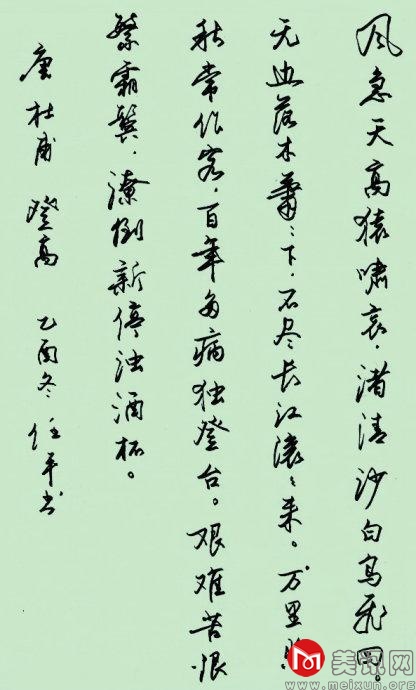 风急天高猿啸哀，渚清沙白鸟飞回。
无边落木萧萧下，不尽长江滚滚来。万里悲
秋常作客，百年多病独登台。艰难苦恨
繁霜鬓，潦倒新停浊酒杯。
唐杜甫 登高 乙酉冬任平书
美讯网
www.meixun.org